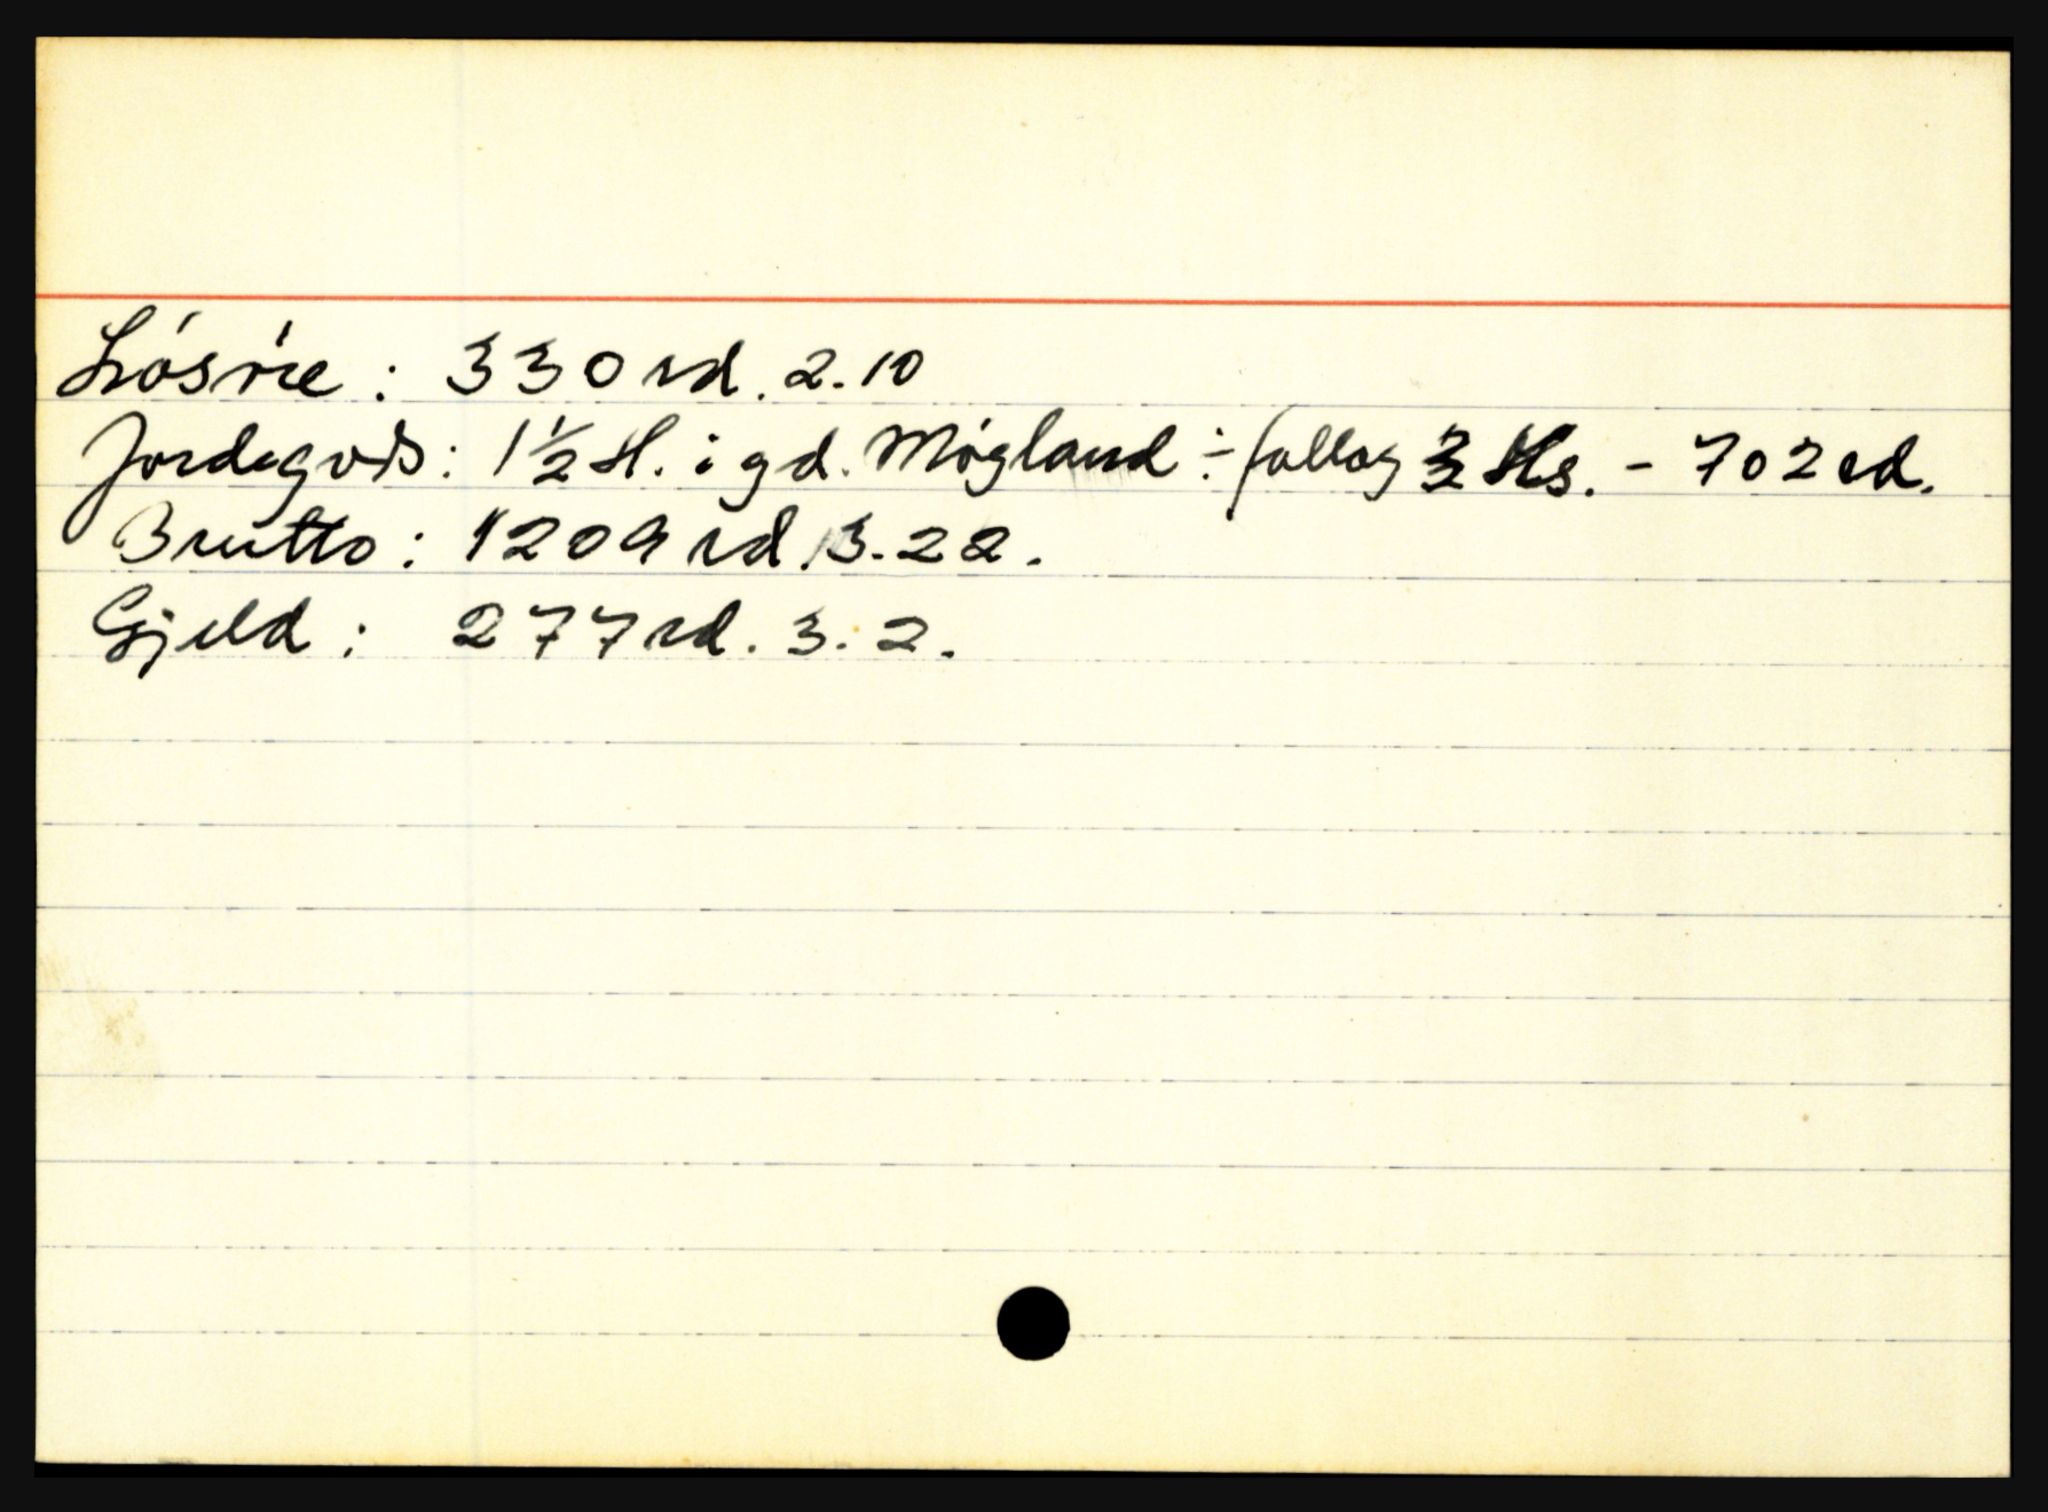 Lósóre: 330 rd. 2.10
Jordegods: 1½ H. i gd. Mógland ÷ follog 3 Hs. - 702 rd.
Brutto: 1209 rd. 3.22.
Gjeld: 277 rd. 3.2.